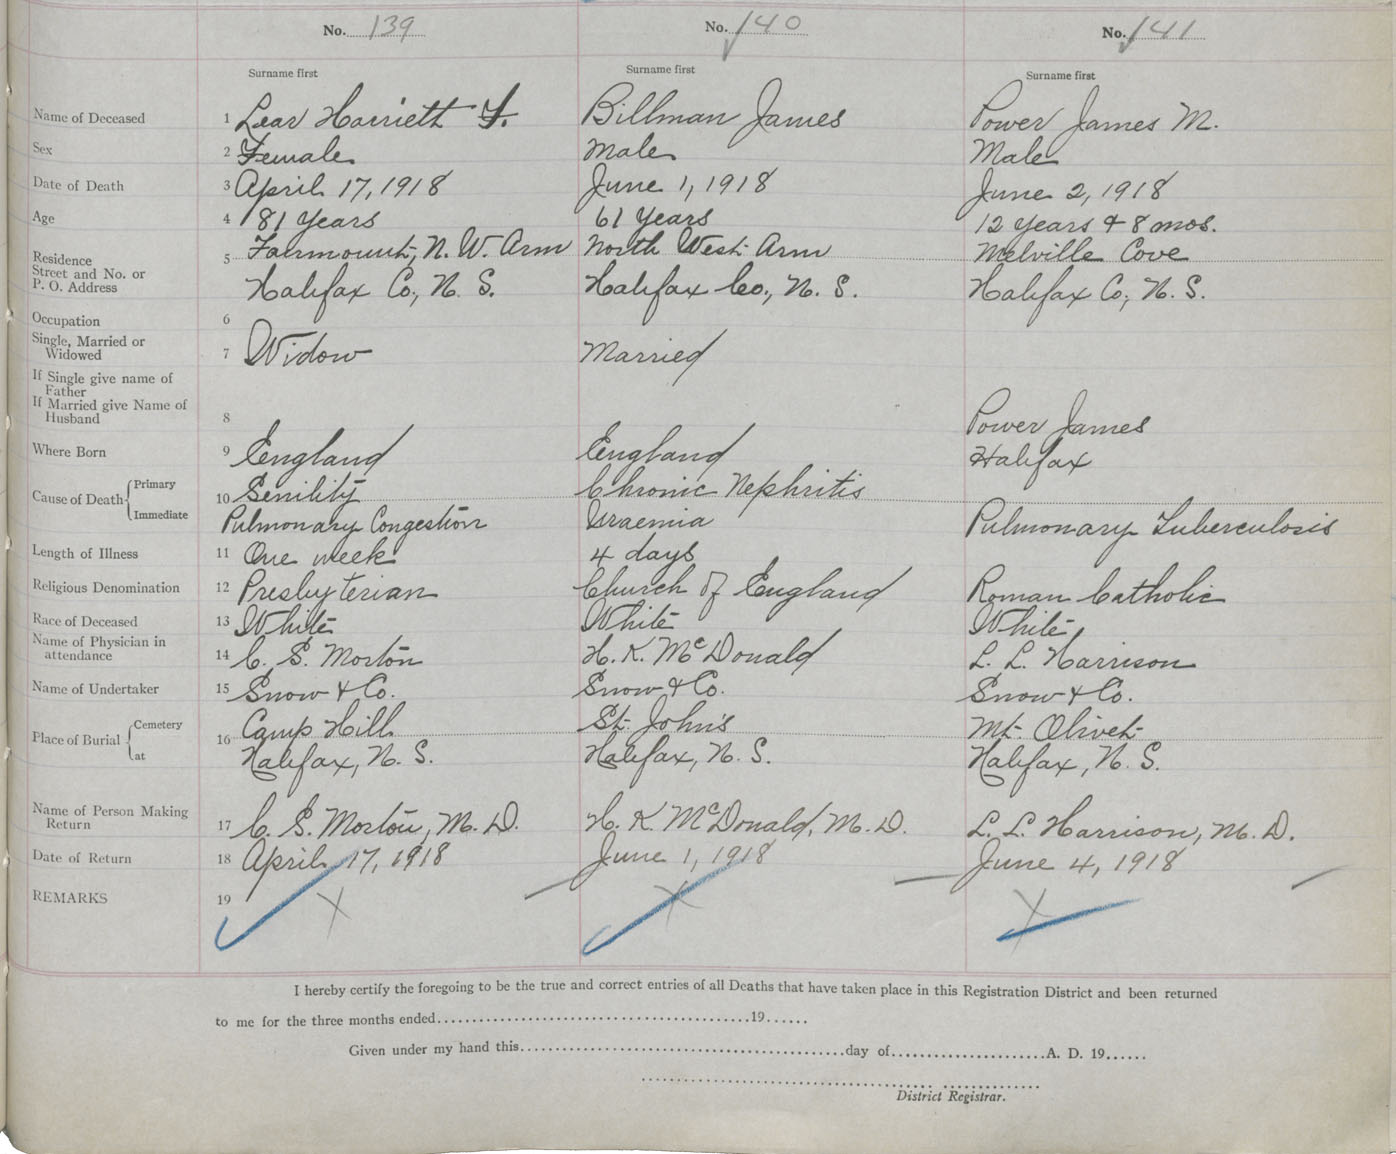 No. 139 No. 140 No. 141
Surname first Surname first Surname first
Name of Deceased 1 Lear Harriett F. Billman James Power James M.
Sex 2 Female Male Male
Date of Death 3 April 17, 1918 June 1, 1918 June 2, 1918
Age 4 81 Years 61 Years 12 Years & 8 mos.
Residence 5 Fairmount, N. W. Arm North West Arm Melville Cove
Street and No. or
P. O. Address Halifax Co., N. S. Halifax Co., N. S. Halifax Co., N. S.
Occupation 6
Single, Married or
Widowed 7 Widow Married
If Single give name of
Father
If Married give Name of
Husband 8 Power James
Where Born 9 England England Halifax
Cause of Death { Primary 10 Senility Chronic Nephritis
Immediate Pulmonary Congestion Uraemia Pulmonary Tuberculosis
Length of Illness 11 One week 4 days
Religious Denomination 12 Presbyterian Church of England Roman Catholic
Race of Deceased 13 White White White
Name of Physician in
attendance 14 C. S. Morton H. K. McDonald L. L. Harrison
Name of Undertaker 15 Snow & Co. Snow & Co. Snow & Co.
Place of Burial { Cemetery 16 Camp Hill St. John's Mt. Olivet
at Halifax, N. S. Halifax, N. S. Halifax, N. S.
Name of Person Making
Return 17 C. S. Morton, M. D. H. K. McDonald, M. D. L. L. Harrison, M. D.
Date of Return 18 April 17, 1918 June 1, 1918 June 4, 1918
REMARKS 19 X X X
I hereby certify the foregoing to be the true and correct entries of all Deaths that have taken place in this Registration District and been returned
to me for the three months ended..........19......
Given under my hand this..........day of..........A. D. 19......
District Registrar.